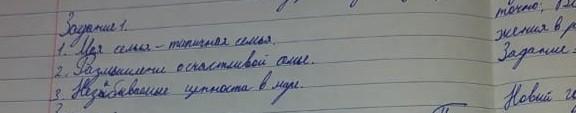 Задание 1.
1. Моя семья – типичная семья.
2. Размышление о счастливой семье.
3. Незабываемые ценности в мире.
точно;
жения в р
Задание
Новий го